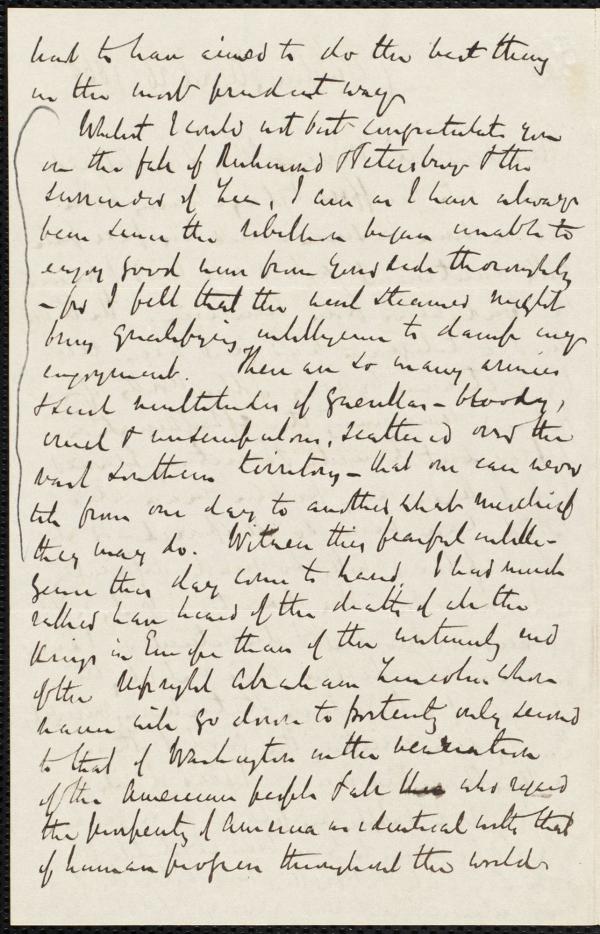 but to have aimed to do the best thing
in the most prudent way
Whilst I could not but congratulate you
on the fall of Richmond & Petersburg & the
surrender of Lee, I am as I have always
been since the rebellion began unable to
enjoy good news from your side thoroughly
- for I felt that the next steamer might
bring qualifying intelligence to damp my
enjoyment. There are so many armies
& such multitudes of guerillas - bloody,
cruel & unscrupulous, scattered over the
vast Southern territory - that one can never
tell from one day to another what mischief
they may do. Witness this fearful intelli-
gence this day come to hand. I had much
rather have heard of the death of all the
Kings in Europe than of the untimely end
of the upright Abraham Lincoln whose
name will go down to posterity only second
to that of Washington in the veneration
of the American people & all who regard
the prosperity of America as identical with that
of human progress throughout the world